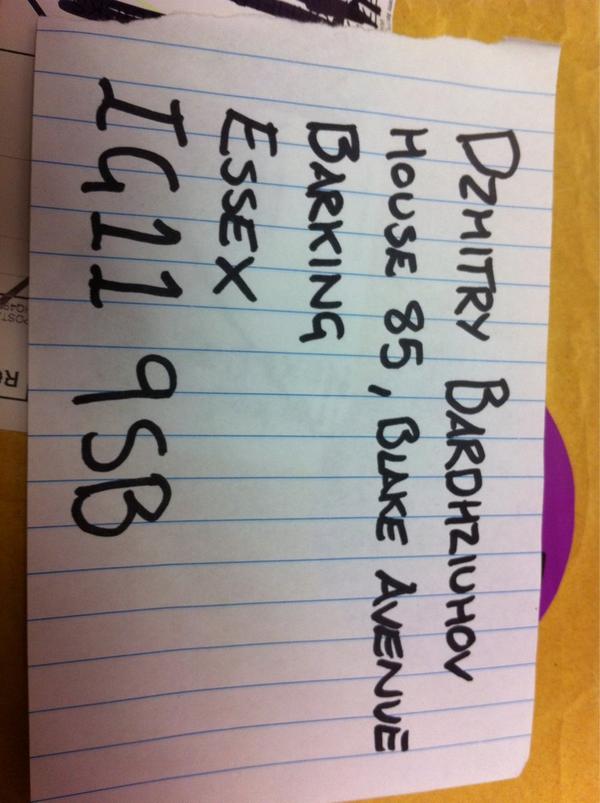 DZMITRY BARDHZIUHOV
HOUSE 85, BLAKE AVENUE
BARKING
ESSEX
IG11 9SB